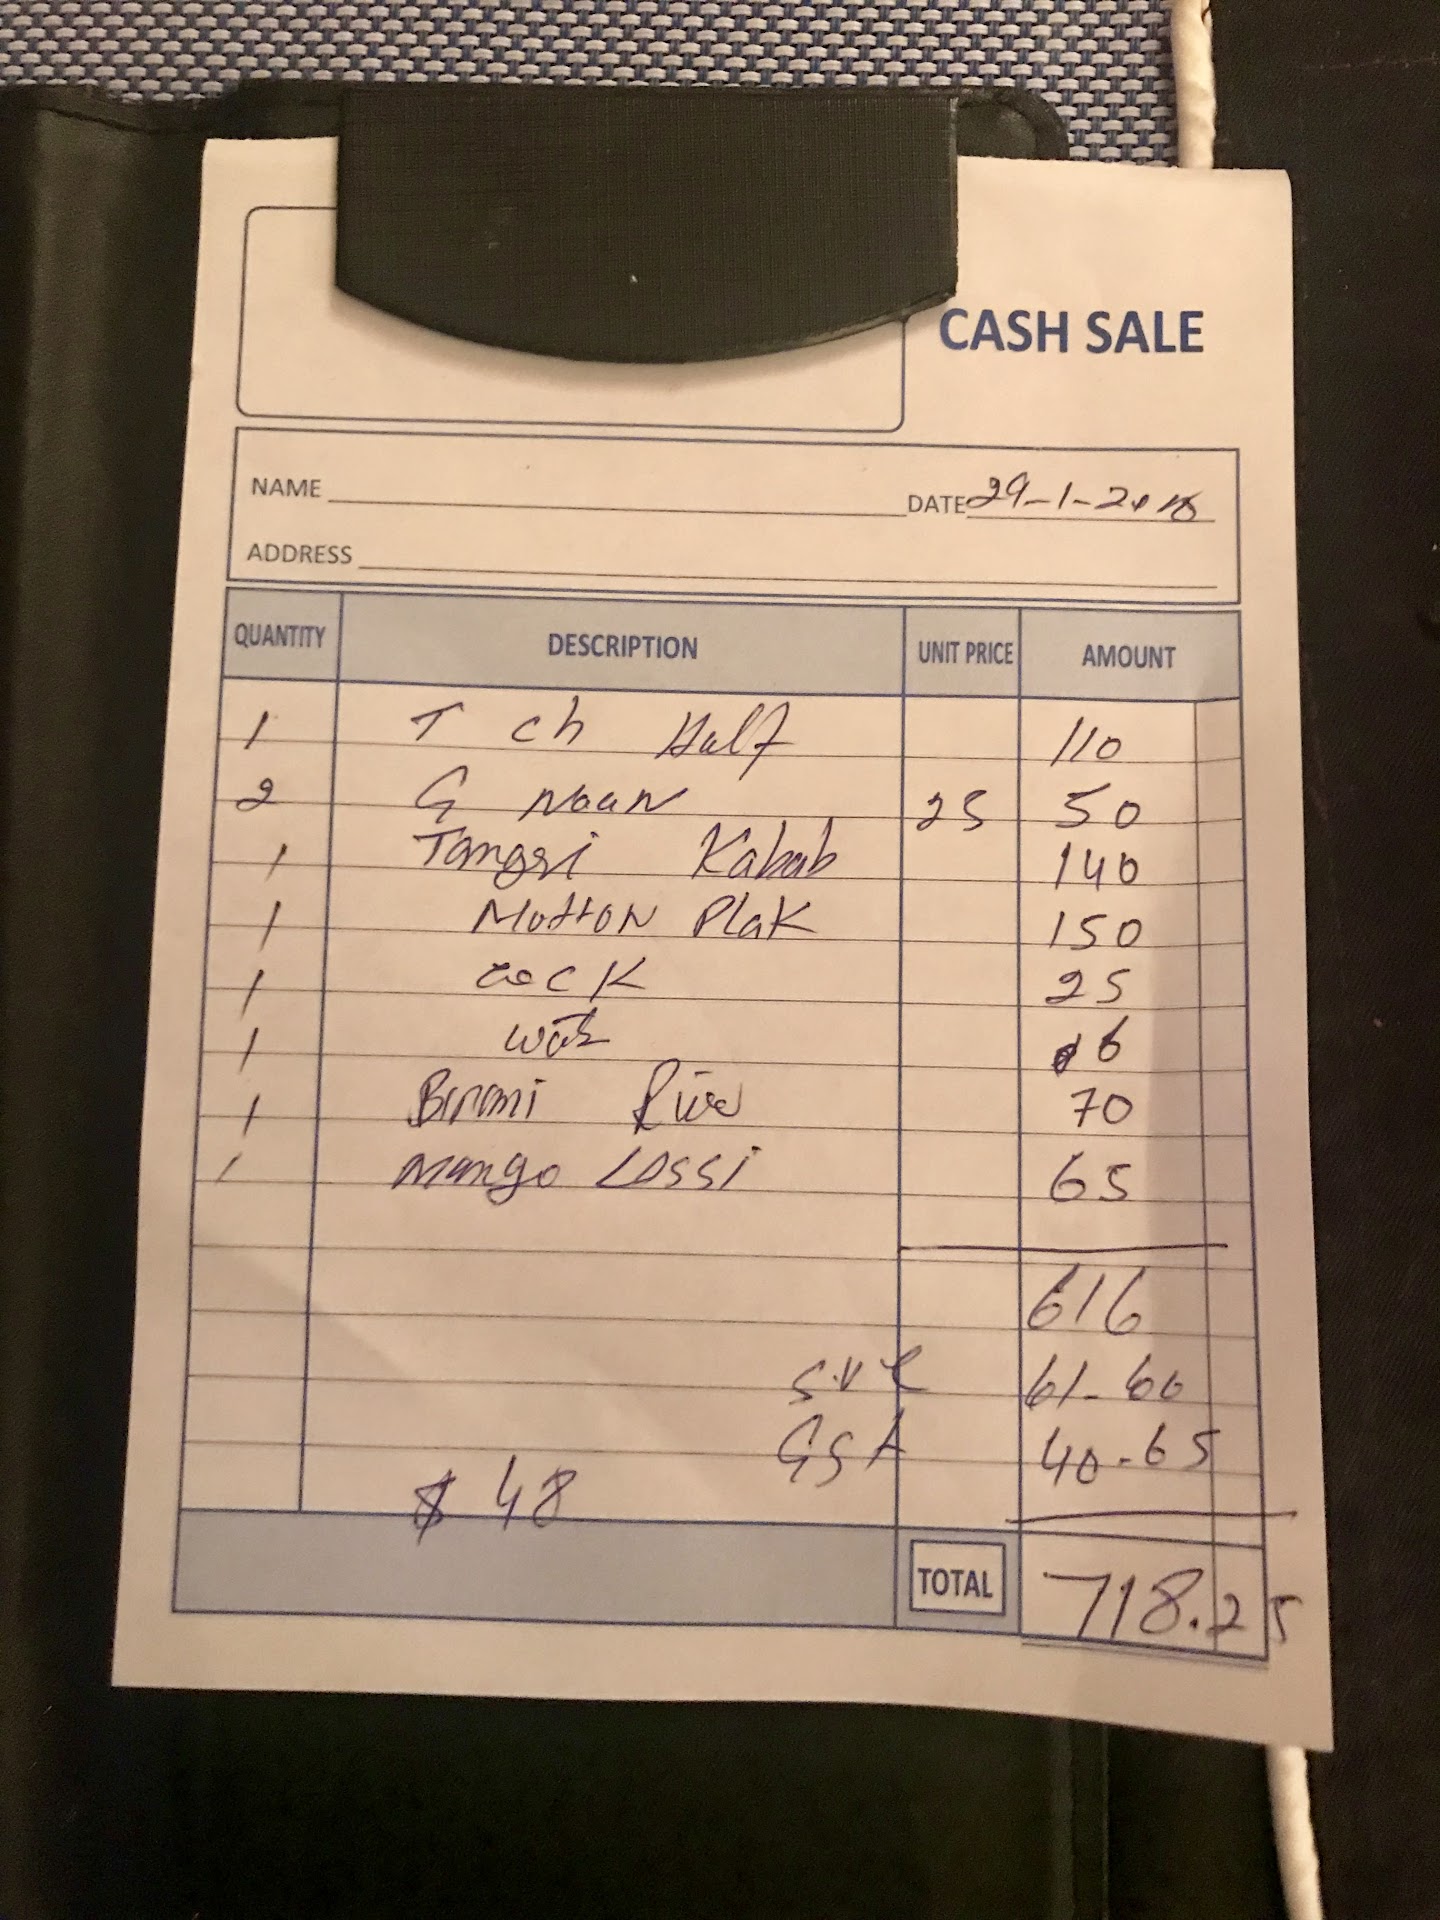 CASH SALE
NAME
DATE 29-1-2018
ADDRESS
QUANTITY DESCRIPTION UNIT PRICE AMOUNT
1 T ch Half 110
2 G Naan 25 50
1 Tangri Kabab 140
1 Mutton Plak 150
1 25
1 6
1 70
1 Mango Lassi 65
616
61-60
40-65
$ 48
TOTAL 718.25